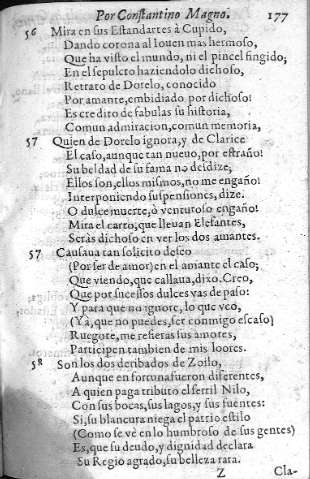 Por Constantino Magno. 177
56 Mira en sus Estandartes à Cupido,
Dando corona al Iouen mas hermoso,
Que ha visto el mundo, ni el pincel fingido;
En el sepulcro haziendolo dichoso,
Retrato de Dorelo, conocido
Por amante, embidiado por dichoso:
Es credito de fabulas su historia,
Comun admiracion, comun memoria,
57 Quien de Dorelo ignora, y de Clarice
El caso, aunque tan nueuo, por estraño!
Su beldad de su fama no desdize;
Ellos son, ellos mismos, no me engaño!
Interponiendo suspensiones, dize.
O dulce muerte, ò venturoso engaño!
Mira el carro, que lleuan Elefantes,
Seràs dichoso en ver los dos amantes.
57 Causaua tan solicito deseo
(Por ser de amor) en el amante el caso;
Que viendo, que callaua, dixo. Creo,
Que por sucessos dulces vas de paso:
Y para que no ignore, lo que veo,
(Yà, que no puedes, ser conmigo escaso)
Ruegote, me refieras sus amores,
Participen tambien de mis loores.
58 Son los dos deribados de Zoilo,
Aunque en fortuna fueron diferentes,
A quien paga tributo el fertil Nilo,
Con sus bocas, sus lagos, y sus fuentes:
Si, su blancura niega el patrio estilo
(Como se vè en lo humbroso de sus gentes)
Es, que su deudo, y dignidad declara
Su Regio agrado, su belleza rara.
Z Cla-